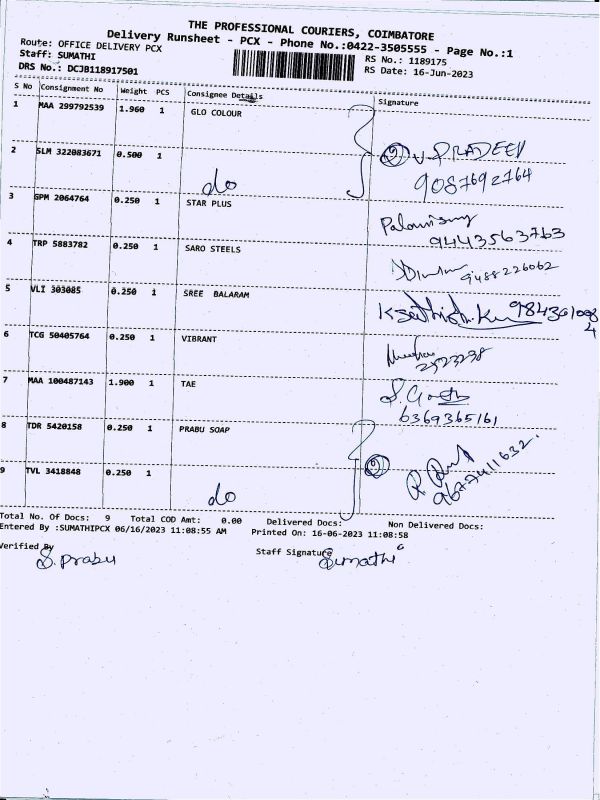 THE PROFESSIONAL COURIERS, COIMBATORE
Delivery Runsheet - PCX - Phone No.:0422-3505555 - Page No.:1
Route: OFFICE DELIVERY PCX RS No.: 1189175
Staff: SUMATHI RS Date: 16-Jun-2023
DRS No.: DCJB118917501
S No Consignment No Weight PCS Consignee Details Signature
1 MAA 299792539 1.960 1 GLO COLOUR
2 SLM 322083671 0.500 1 do
② V. PRADEEV
9087692764
3 GPM 2064764 0.250 1 STAR PLUS
9443563763
4 TRP 5883782 0.250 1 SARO STEELS
9488226062
5 VLI 303085 0.250 1 SREE BALARAM
6 TCG 50405764 0.250 1 VIBRANT
7 MAA 100487143 1.900 1 TAE
6369365161
8 TDR 5420158 0.250 1 PRABU SOAP
②
9677411632.
9 TVL 3418848 0.250 1 do
Total No. Of Docs: 9 Total COD Amt: 0.00 Delivered Docs: Non Delivered Docs:
Entered By :SUMATHIPCX 06/16/2023 11:08:55 AM Printed On: 16-06-2023 11:08:58
Verified By S. Prabu Staff Signature Sumathi